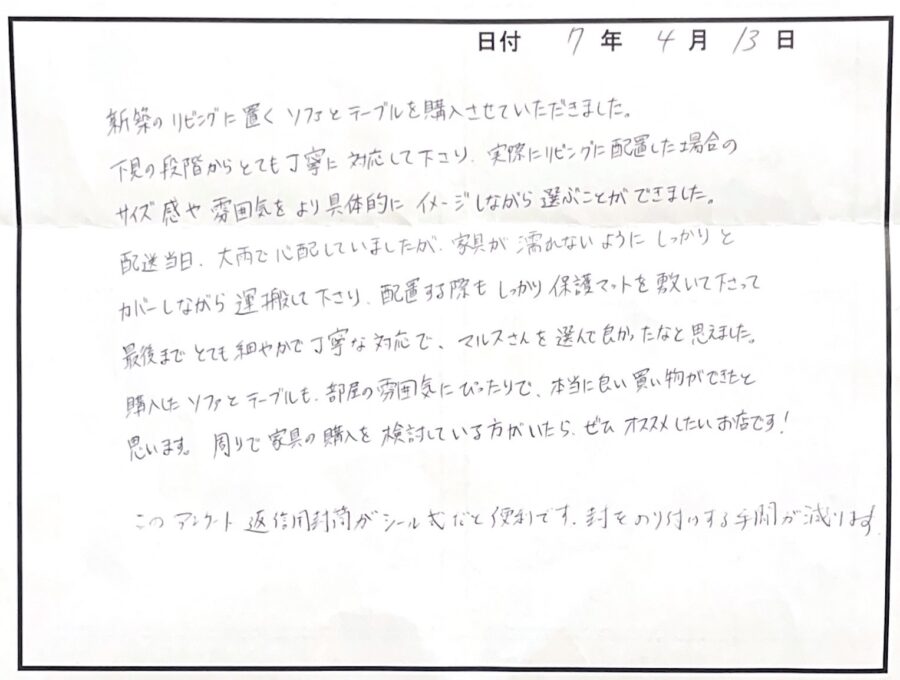 日付 7年 4月 13日
新築のリビングに置くソファとテーブルを購入させていただきました。
下見の段階からとても丁寧に対応して下さり、実際にリビングに配置した場合の
サイズ感や雰囲気をより具体的にイメージしながら選ぶことができました。
配送当日、大雨で心配していましたが、家具が濡れないようにしっかりと
カバーしながら運搬して下さり、配置する際もしっかり保護マットを敷いて下さって
最後までとても細やかで丁寧な対応で、マルスさんを選んで良かったなと思えました。
購入したソファとテーブルも、部屋の雰囲気にぴったりで、本当に良い買い物ができたと
思います。周りで家具の購入を検討している方がいたら、ぜひオススメしたいお店です!
このアンケート返信用封筒がシール式だと便利です。封をのり付けする手間が減ります